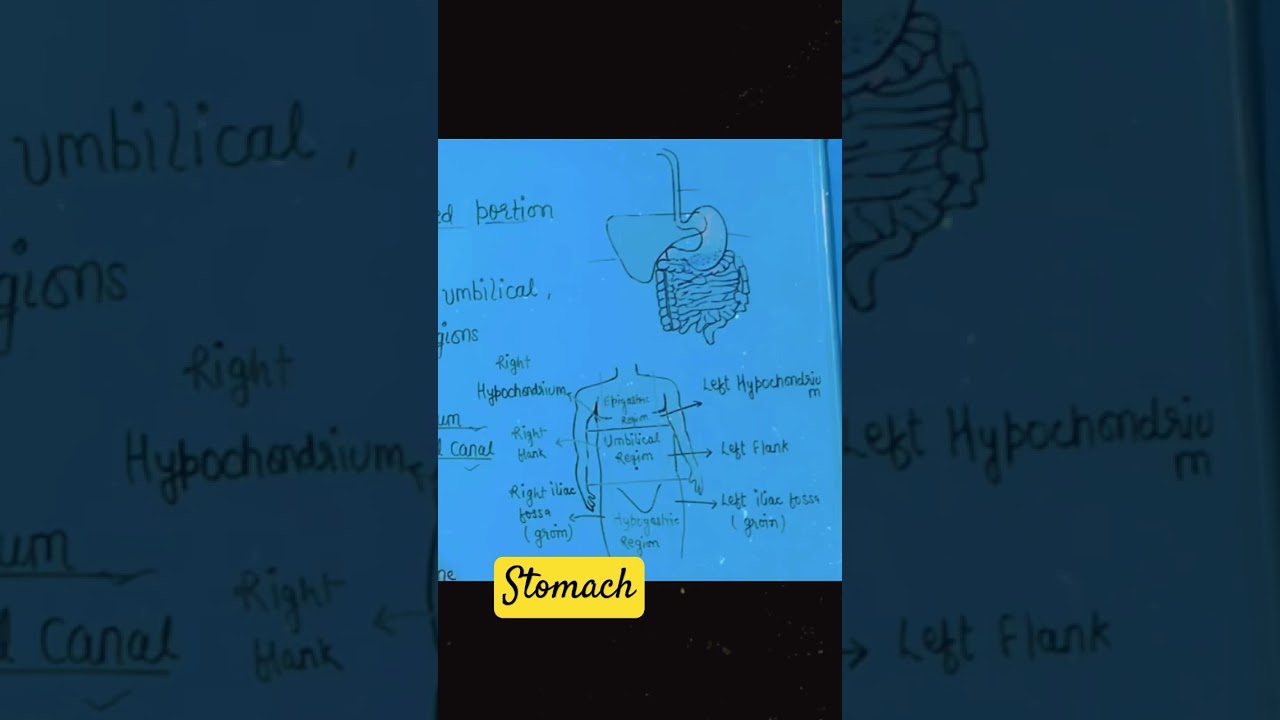 ed portion
umbilical,
gions
Right
Hypochondrium
Left Hypochondriu
m
Epigastric
Region
um
l canal
Right
flank
Umbilical
Region
Left Flank
Right iliac
fossa
(groin)
Left iliac fossa
(groin)
Hypogastric
Region
ne
Stomach
umbilical,
gions
Right
Hypochondrium
Left Hypochondriu
m
um
l canal
Right
flank
Left Flank